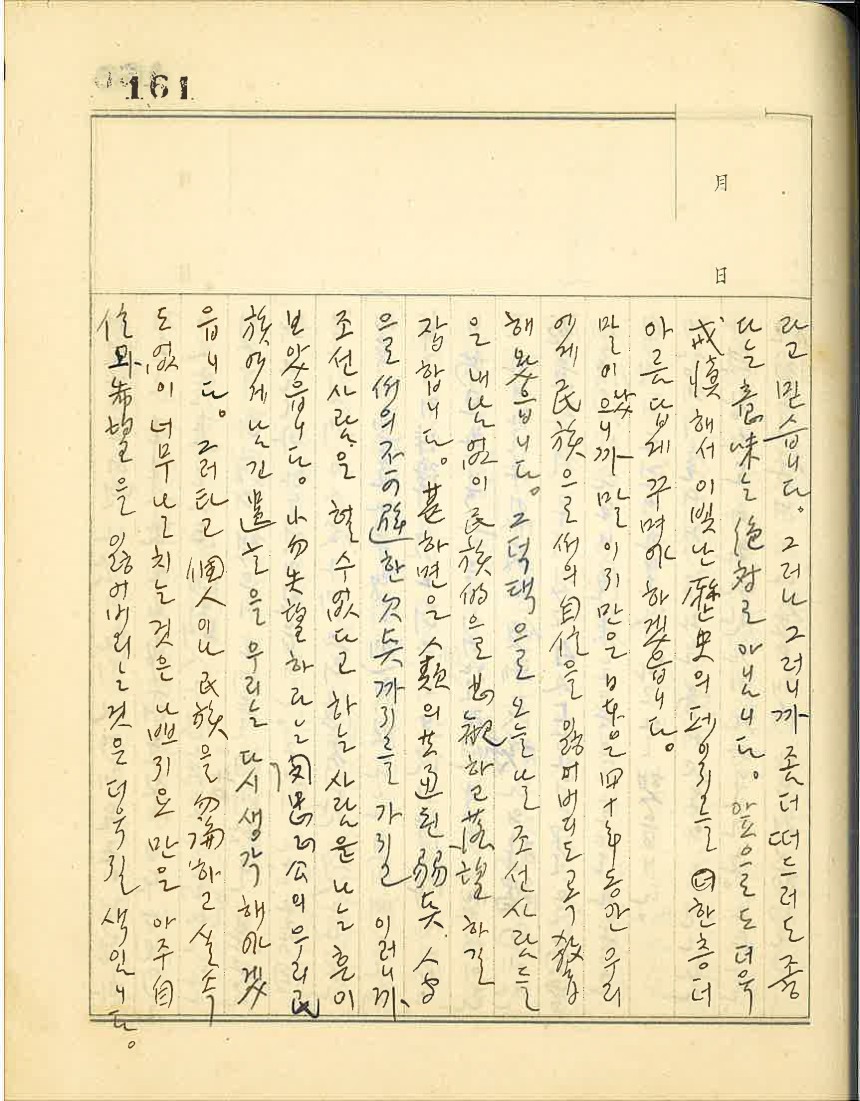 161
月
日
라고 믿습니다. 그러나 그러니까 좀더 떠드러도 좋
다는 意味는 絶對로 아닙니다. 앞으로도 더욱
戒愼해서 이 빛난 歷史의 페이지를 더한층 더
아름답게 꾸며야 하겠읍니다.
말이 났으니까 말이지만은 日本은 四十年동안 우리
에게 民族으로써의 自信을 잃어버리도록 敎育
해 왔읍니다. 그 덕택으로 오늘날 조선사람들
을 내남없이 民族的으로 悲觀하고 落望하길
잘 합니다. 걸핏하면은 人類의 共通된 弱点 人間
으로써의 不可避한 欠点까지를 가지고 이러니까
조선사람은 할 수 없다고 하는 사람을 나는 흔이
보았읍니다. 小勿失望하라는 閔忠正公의 우리 民
族에게 남긴 遺言을 우리는 다시 생각해야겠
읍니다. 그러타고 個人이나 民族을 勿論하고 실속
도 없이 너무 날치는 것은 나쁘지요만은 아주 自
信과 希望을 잃어버리는것은 더욱 질색입니다.